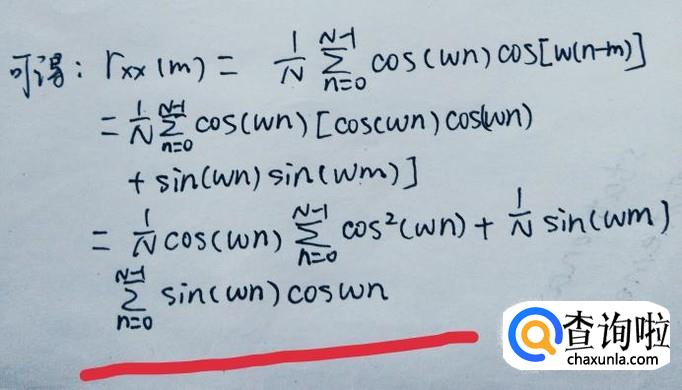 可得: rxx(m) = 1/N ∑_{n=0}^{N-1} cos(wn) cos[w(n-m)]
= 1/N ∑_{n=0}^{N-1} cos(wn) [cos(wn) cos(wn)
+ sin(wn) sin(wm)]
= 1/N cos(wn) ∑_{n=0}^{N-1} cos²(wn) + 1/N sin(wm)
∑_{n=0}^{N-1} sin(wn) coswn
查询啦
chaxunla.com